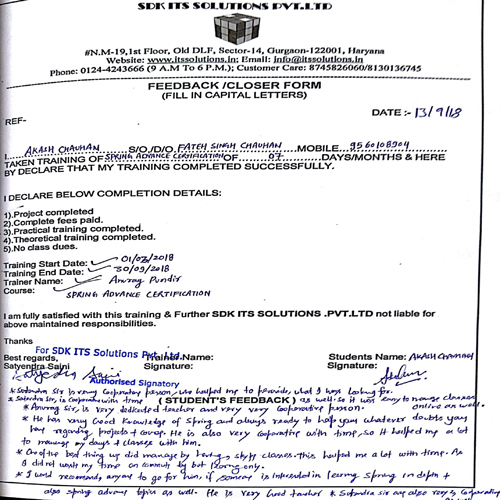 SDK ITS SOLUTIONS PVT.LTD
#N.M-19,1st Floor, Old DLF, Sector-14, Gurgaon-122001, Haryana
Website: www.itssolutions.in; Email: info@itssolutions.in
Phone: 0124-4243666 (9 A.M To 6 P.M.); Customer Care: 8745826060/8130136745
FEEDBACK /CLOSER FORM
(FILL IN CAPITAL LETTERS)
DATE :- 13/9/18
REF-
I....AKASH CHAUHAN........S/O./D/O. FATEH SINGH CHAUHAN......MOBILE...9560108904
TAKEN TRAINING OF SPRING ADVANCE CERTIFICATION OF....07....DAYS/MONTHS & HERE
BY DECLARE THAT MY TRAINING COMPLETED SUCCESSFULLY.
I DECLARE BELOW COMPLETION DETAILS:
1).Project completed
2).Complete fees paid.
3).Practical training completed.
4).Theoretical training completed.
5).No class dues.
Training Start Date: 01/03/2018
Training End Date: 30/09/2018
Trainer Name: Anurag Pundir
Course: SPRING ADVANCE CERTIFICATION
I am fully satisfied with this training & Further SDK ITS SOLUTIONS .PVT.LTD not liable for
above maintained responsibilities.
Thanks
For SDK ITS Solutions Pvt. Ltd.
Best regards, Trainer Name: Students Name: AKASH CHAUHAN
Satyendra Saini Signature: Signature:
Authorised Signatory
Sir is very Cooperative person, who helped me to provide, what I was looking for.
Sir, is Cooperative with time (STUDENT'S FEEDBACK) as well. so it was easy to manage classes
online as well.
* Anurag Sir, is very dedicated teacher and very very Cooperative person.
* He has very Good Knowledge of Spring and always ready to help you whatever doubts you
have regarding projects + Concept. He is also very Cooperative with time, so it helped me a lot
to manage my days + classes with him.
* One of the best thing we did manage by having skype classes. This helped me a lot with time. As
I did not waste my time on commute but learning only.
* I would recommend anyone to go for him, if someone is interested in learning spring in depth +
also spring advance topics as well. He is very Good teacher * Sir are also very Cooperative